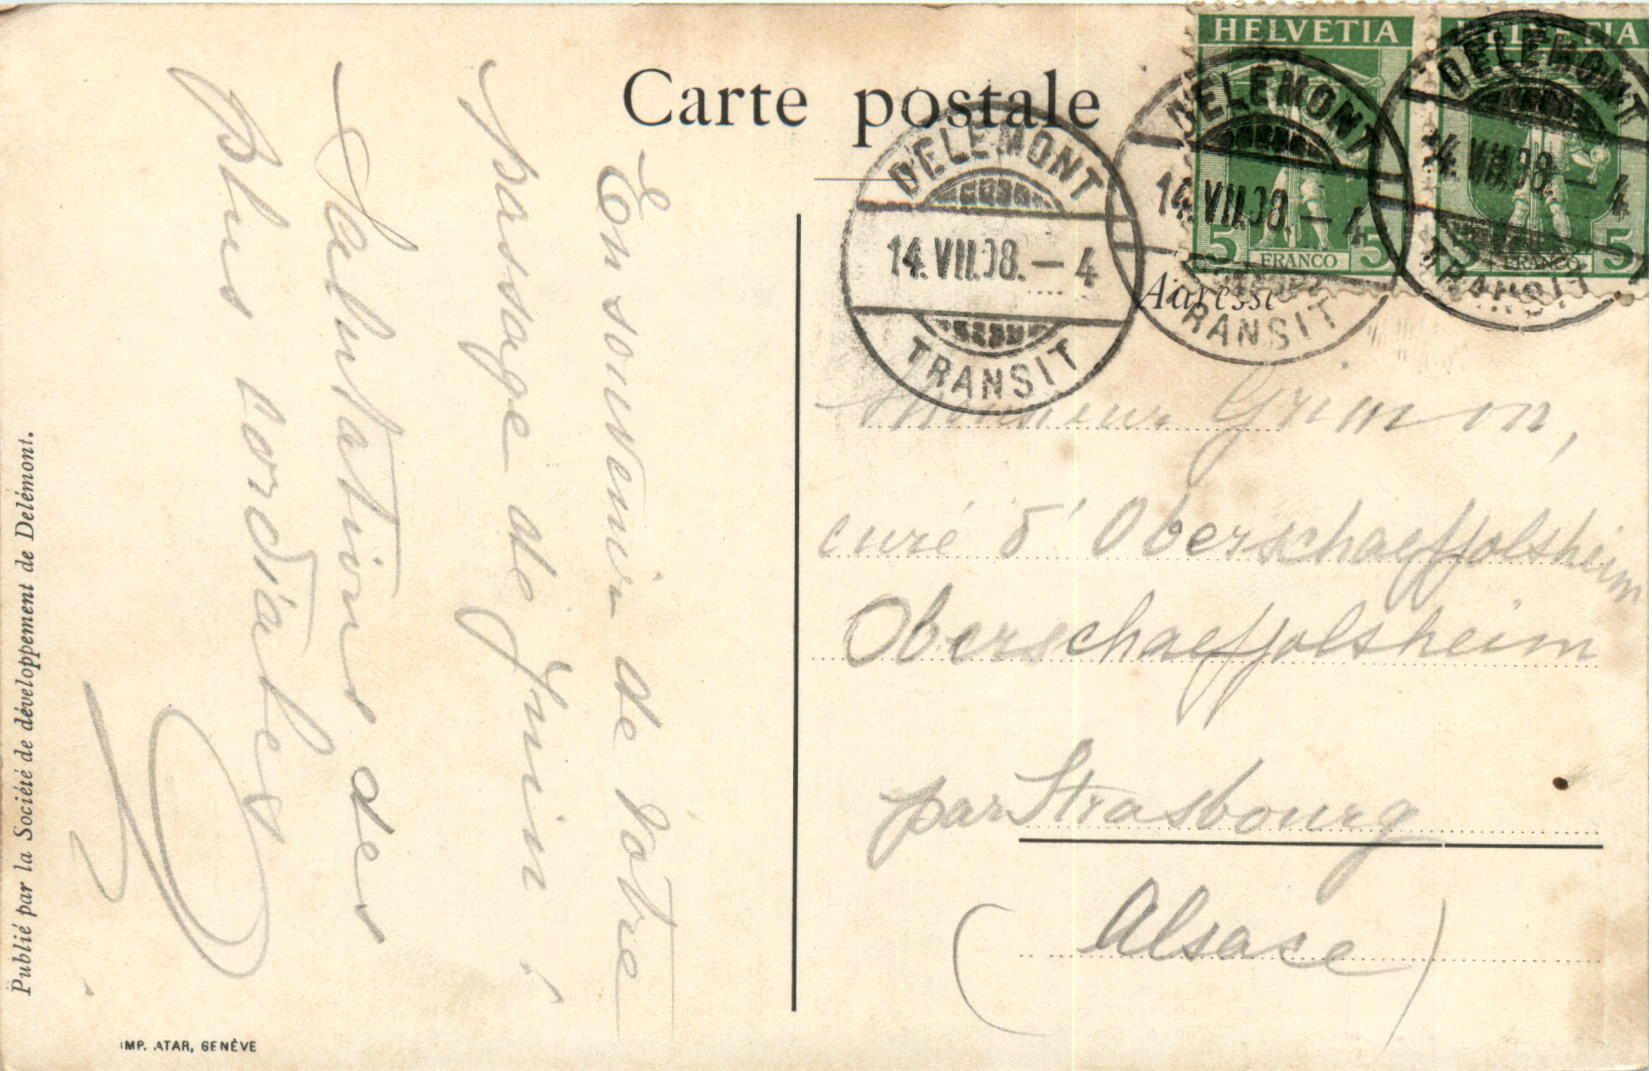 Carte postale
HELVETIA
HELVETIA
5 FRANCO 5
5 FRANCO 5
DELÉMONT
14.VII.08.–4
TRANSIT
DELÉMONT
14.VII.08.–4
TRANSIT
DELÉMONT
14.VII.08.–4
TRANSIT
Adresse
Monsieur Grimm,
curé d'Oberschaeffolsheim
Oberschaeffolsheim
par Strasbourg
(Alsace)
En souvenir de votre
passage de Juin!
Salutations des
plus cordiales
Publié par la Société de développement de Delémont.
IMP. ATAR, GENÈVE